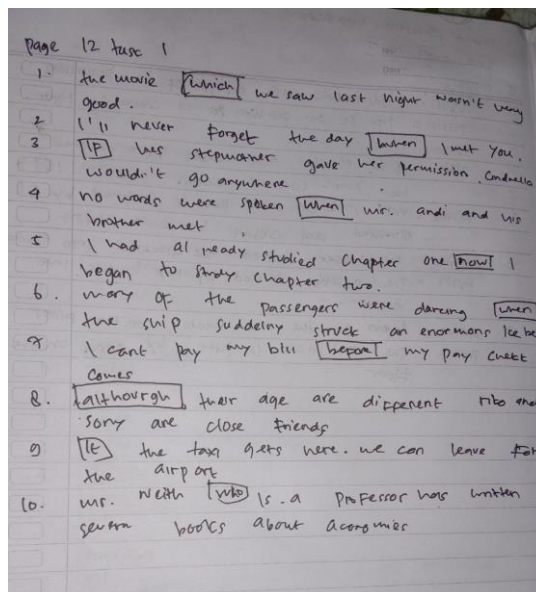 page 12 task 1
1. the movie which we saw last night wasn't very
good.
2 I'll never forget the day when I met you.
3 IF hes stepmother gave her permission. Cindrella
wouldn't go anywhere
4 no words were spoken when mr. andi and his
brother met.
5 I had al ready studied Chapter one now I
began to study chapter two.
6. many of the passengers were dancing when
the ship suddelny struck an enormons Ice be
7 I cant pay my bill before my pay chekk
comes
8. althourgh their age are different ribo and
sony are close friends
9 If the taxi gets here. we can leave for
the airport
10. mr. neith who is. a professor has written
severa books about aconomies